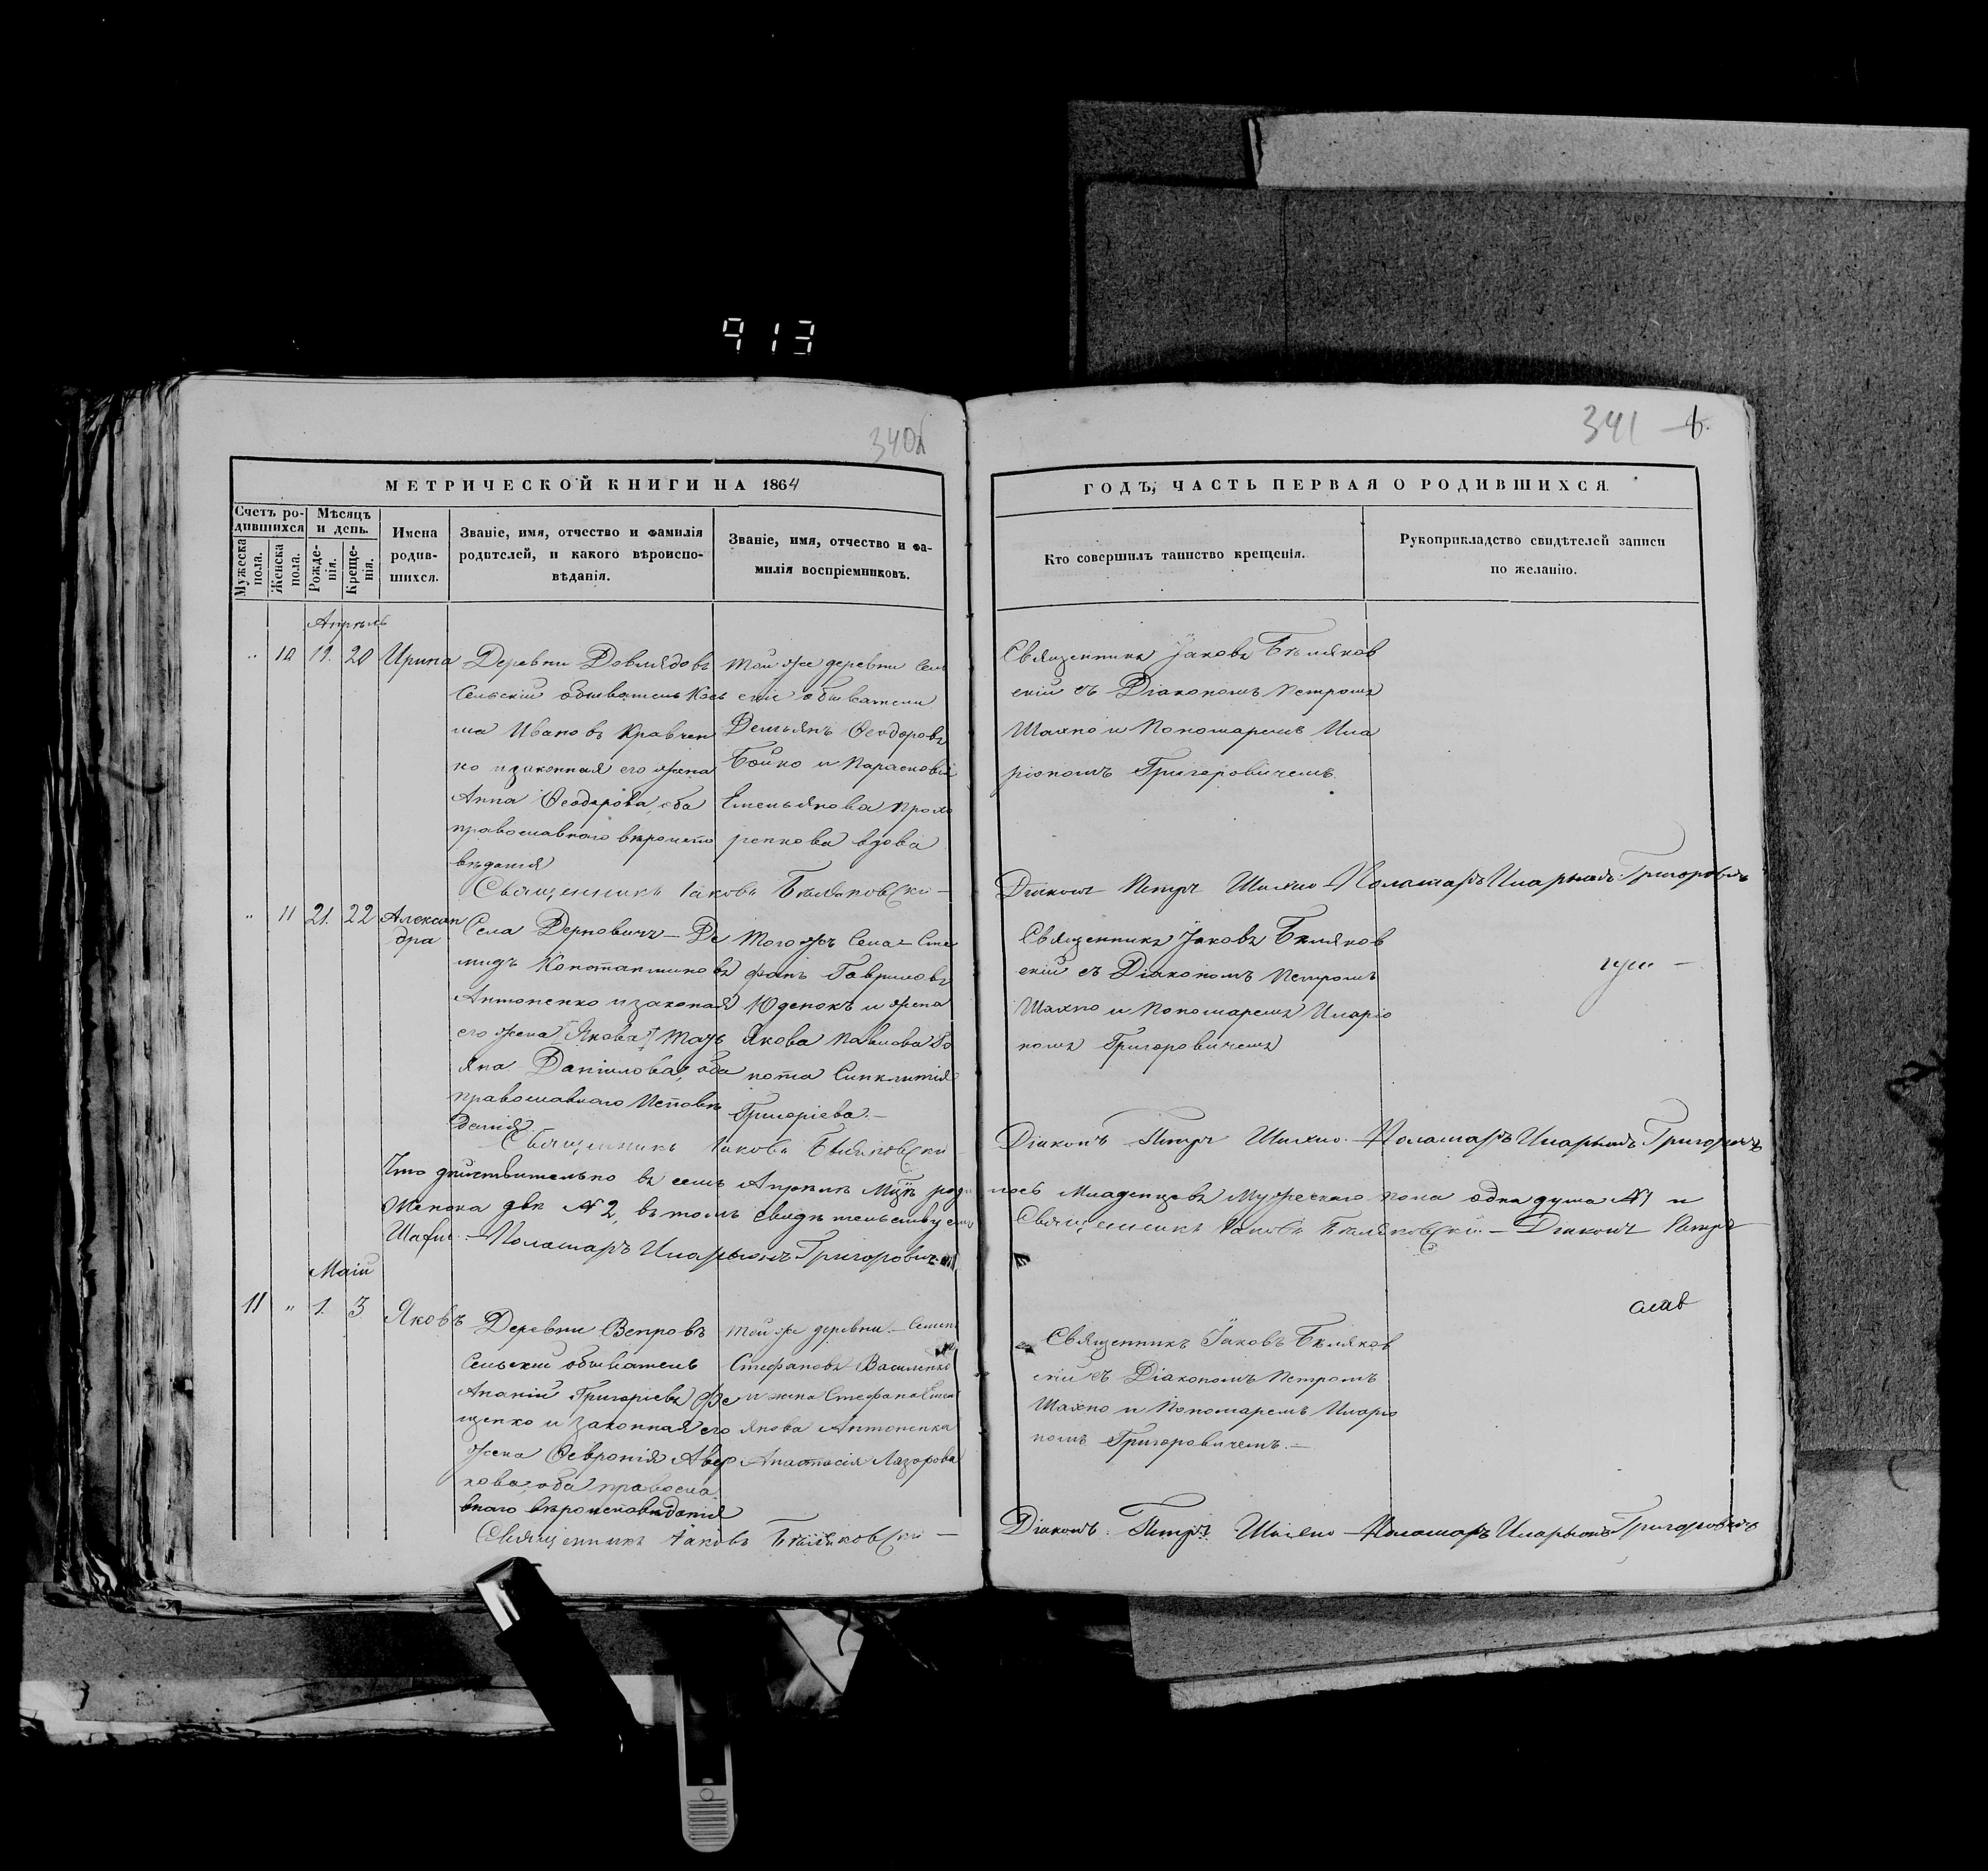 913
340б
МЕТРИЧЕСКОЙ КНИГИ НА 1864
Счетъ ро-
дившихся
Мужеска пола.
Женска пола.
Мѣсяцъ
и день.
Рожде-
нія.
Креще-
нія.
Имена
родив-
шихся.
Званіе, имя, отчество и фамилія
родителей, и какого вѣроиспо-
вѣданія.
Званіе, имя, отчество и фа-
милія воспріемниковъ.
Апрѣль
" 10 19. 20 Ирина
Деревни Довлядовъ
Сельскій обыватель Кось
ма Ивановъ Кравчен
ко и законная его жена
Анна Ѳеодорова, оба
православнаго вѣроиспо
вѣданія
Той же деревни Сель
скіе обыватели
Демьянъ Ѳеодоровъ
Бойко и Парасковія
Емельянова Прохо
ренкова вдова
Священникъ Іаковъ Бѣляковскій —
" 11 21. 22 Алексан
дра
Села Дерновичъ — Де
мидъ Константиновъ
Антоненко и законая
его жена Тать
яна Даніилова, оба
православнаго Исповѣ
данія
Того жъ Села — Сте
фанъ Гавриловъ
Юденокъ и жена
Якова Павлова
Синклитія
Григоріева. —
Священникъ Іаковъ Бѣляковскій
Что дѣйствительно въ семъ Апрѣлѣ М-цѣ роди
Женска двѣ № 2, въ томъ свидѣтельствуемъ
Шахно. Поламаръ Иларыонъ Григоровичъ
Маій
11 " 1. 3 Яковъ
Деревни Вепровъ
Сельскій обыватель
Ананій Григоріевъ Фе
щенко и законная его
жена Ѳевронія Авер
кова, оба правосла
внаго вѣроисповѣданія
Той же деревни —
Стефановъ Василенко
и жена Стефана Емель
янова Антоненка
Анастасія Лазорова
Священникъ Іаковъ Бѣляковскій —
341
ГОДЪ, ЧАСТЬ ПЕРВАЯ О РОДИВШИХСЯ.
Кто совершилъ таинство крещенія.
Рукоприкладство свидѣтелей записи
по желанію.
Священникъ Іаковъ Бѣляков
скій съ Діакономъ Петромъ
Шахно и Пономаремъ Ила
ріономъ Григоровичемъ.
Діаконъ Петръ Шахно Поламаръ Иларыонъ Григоровичъ
Священникъ Іаковъ Бѣляков
скій съ Діакономъ Петромъ
Шахно и Пономаремъ Иларіо
номъ Григоровичемъ
Діаконъ Петръ Шахно. Поламаръ Иларыонъ Григоровичъ
лось Младенцевъ Мужескаго пола одна душа №1 и
Священникъ Іаковъ Бѣляковскій. — Діаконъ Петръ
Священникъ Іаковъ Бѣляков
скій съ Діакономъ Петромъ
Шахно и Пономаремъ Иларіо
номъ Григоровичемъ. —
Діаконъ Петръ Шахно Поламаръ Иларыонъ Григоровичъ